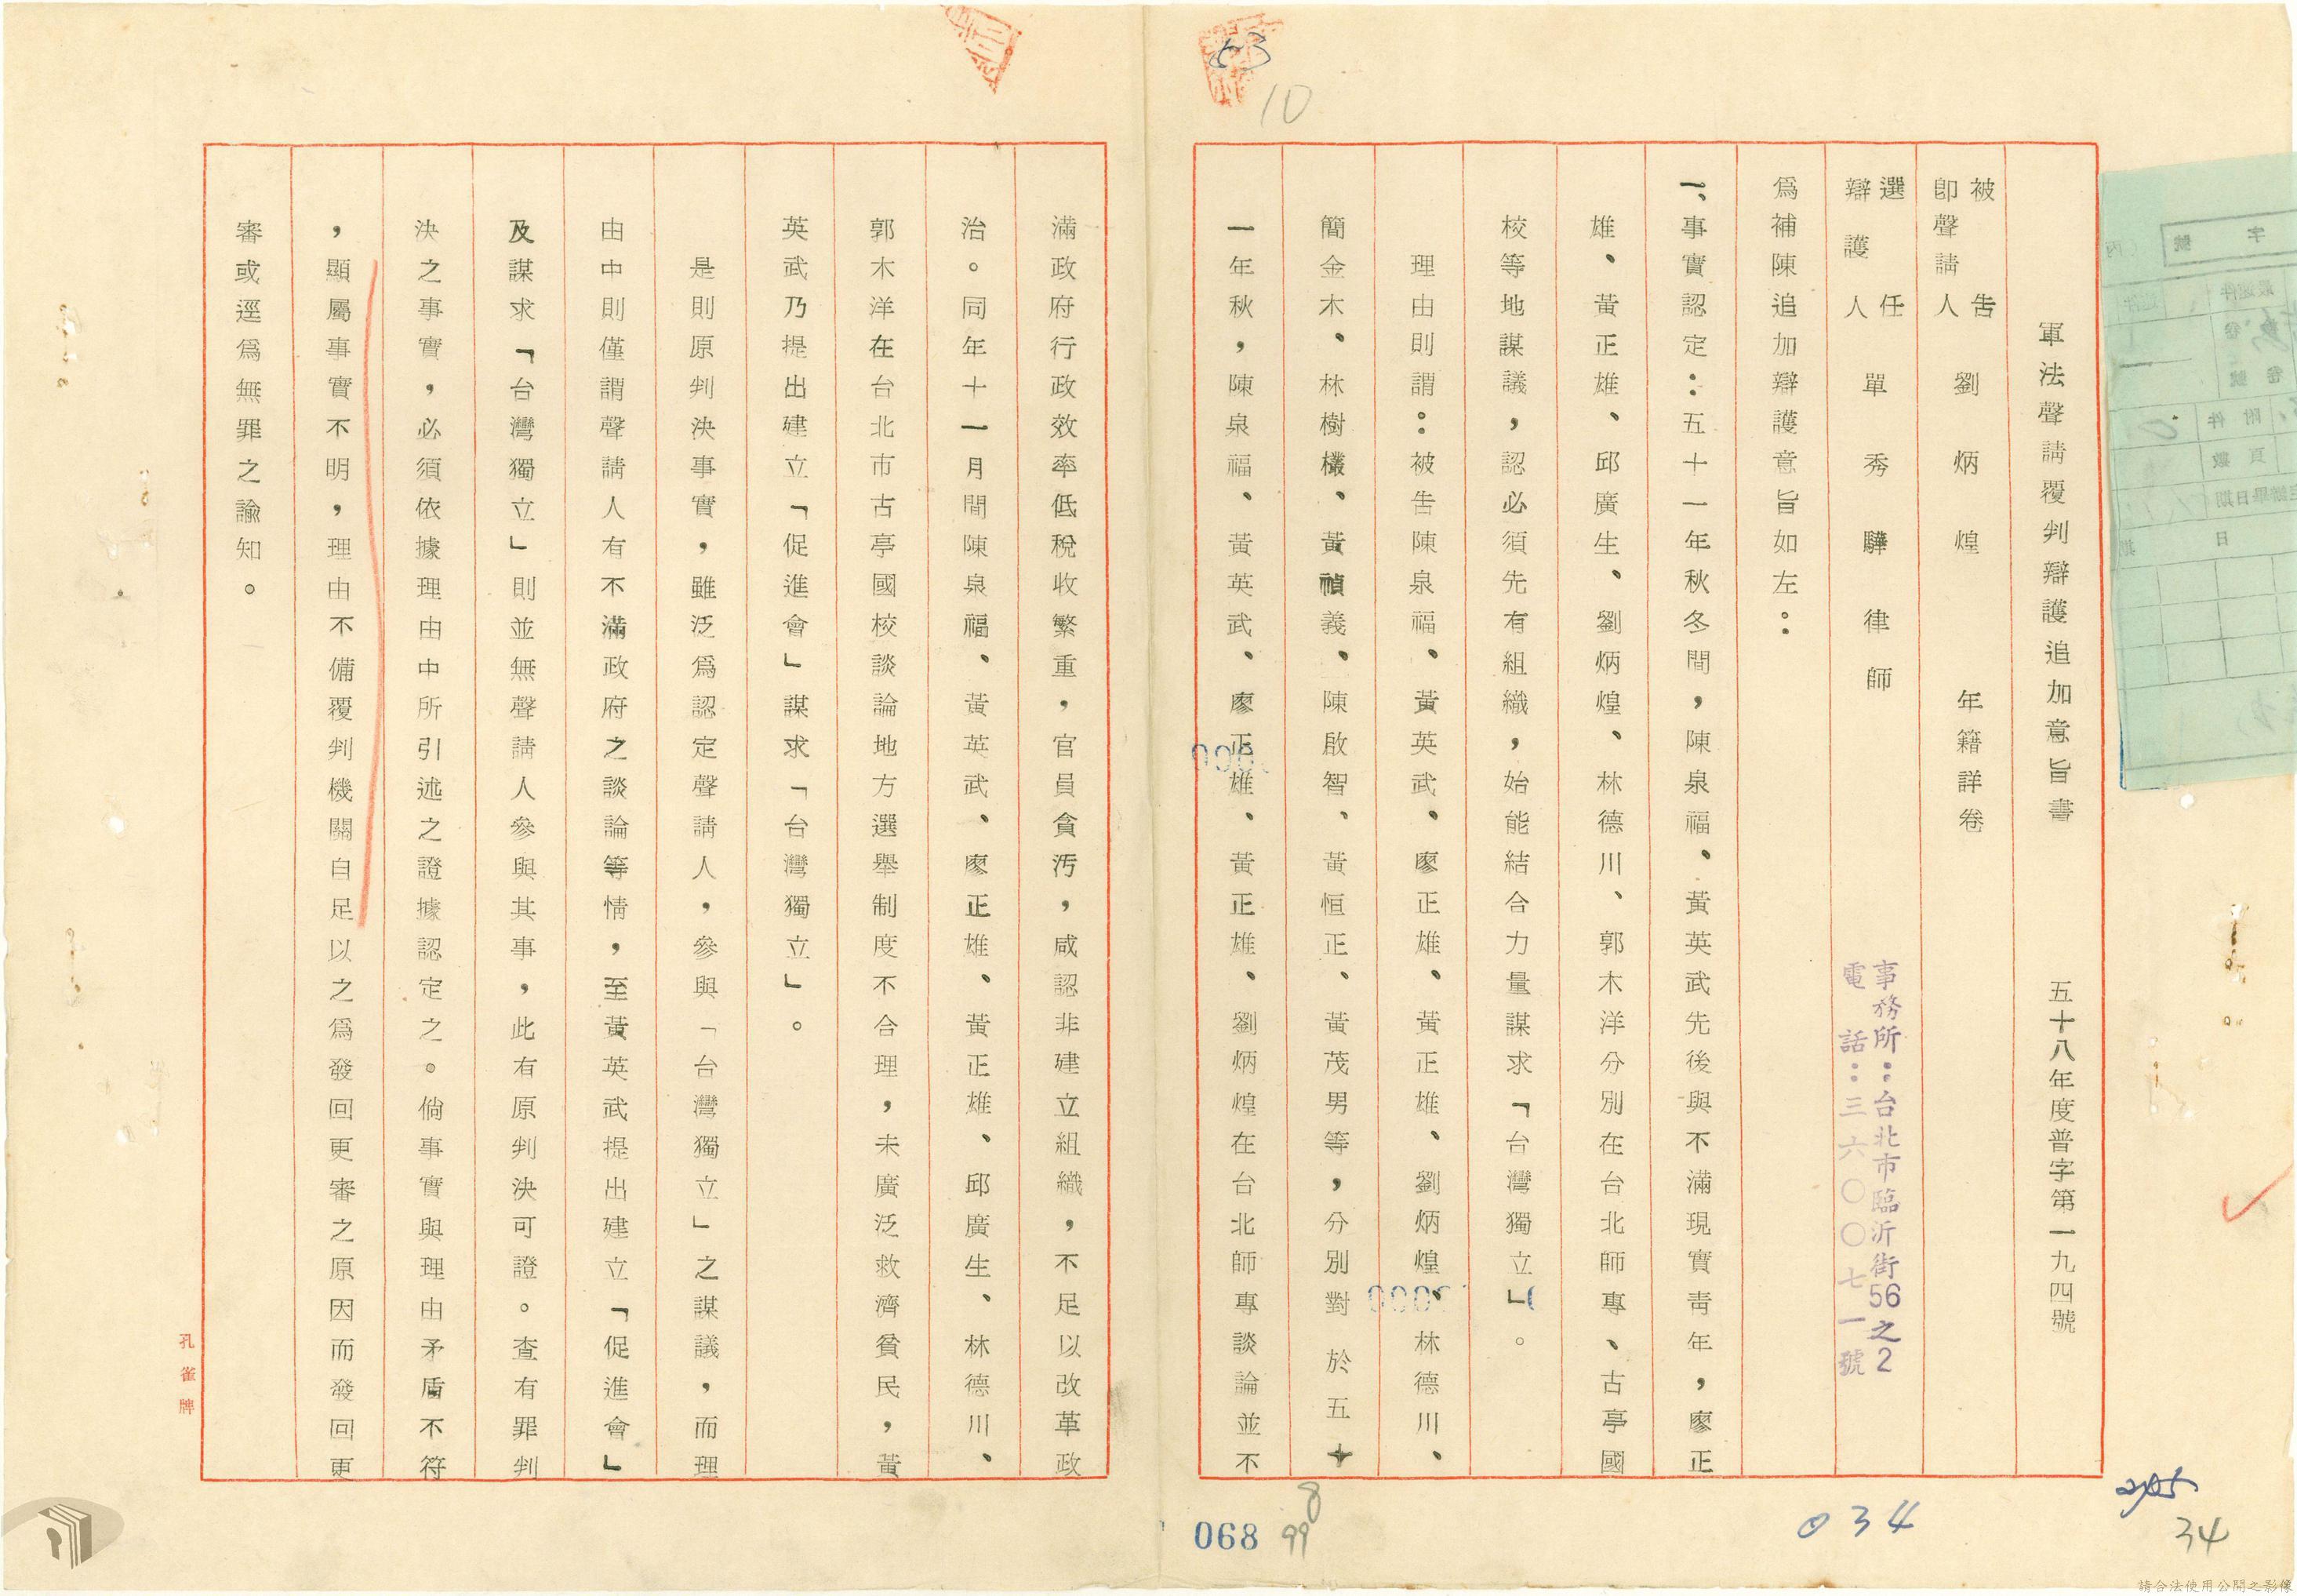 軍法聲請覆判辯護追加意旨書
五十八年度普字第一九四號
被告
即聲請人
劉炳煌
年籍詳卷
選任
辯護人
單秀驊律師
事務所：台北市臨沂街56之2
電話：三六〇〇七一號
為補陳追加辯護意旨如左：
一、事實認定：五十一年秋冬間，陳泉福、黃英武先後與不滿現實青年，廖正
雄、黃正雄、邱廣生、劉炳煌、林德川、郭木洋分別在台北師專、古亭國
校等地謀議，認必須先有組織，始能結合力量謀求「台灣獨立」。
理由則謂：被告陳泉福、黃英武、廖正雄、黃正雄、劉炳煌、林德川、
簡金木、林樹欉、黃禎義、陳啟智、黃恒正、黃茂男等，分別對於五十
一年秋，陳泉福、黃英武、廖正雄、黃正雄、劉炳煌在台北師專談論並不
滿政府行政效率低稅收繁重，官員貪污，咸認非建立組織，不足以改革政
治。同年十一月間陳泉福、黃英武、廖正雄、黃正雄、邱廣生、林德川、
郭木洋在台北市古亭國校談論地方選舉制度不合理，未廣泛救濟貧民，黃
英武乃提出建立「促進會」謀求「台灣獨立」。
是則原判決事實，雖泛為認定聲請人，參與「台灣獨立」之謀議，而理
由中則僅謂聲請人有不滿政府之談論等情，至黃英武提出建立「促進會」
及謀求「台灣獨立」則並無聲請人參與其事，此有原判決可證。查有罪判
決之事實，必須依據理由中所引述之證據認定之。倘事實與理由矛盾不符
，顯屬事實不明，理由不備覆判機關自足以之為發回更審之原因而發回更
審或逕為無罪之諭知。
孔雀牌
63
10
068
8
99
034
34
字
號
附件
頁數
日
期
請合法使用公開之影像